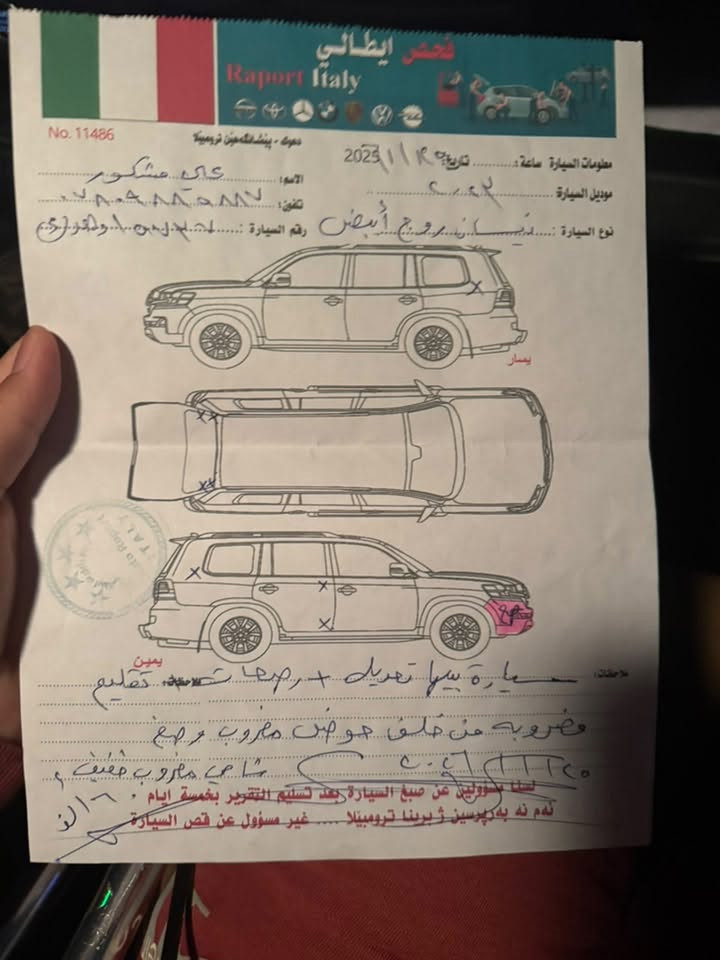 فحص ايطالي
Raport Italy
No. 11486
دهوك - پیشانگەهێن ترومبێلا
معلومات السيارة ساعة : تاريخ: 2025
الاسم: علي مشكور
موديل السيارة : ٢٠٢٣
تلفون:
نوع السيارة : نيسان روج أبيض رقم السيارة :
يسار
يمين
ملاحظات: سيارة بيها تعديل + رصعات تقليم
مضروبه من خلف حوض مضروب وصبغ
شاصي مضروب خفيف
لسنا مسؤولين عن صبغ السيارة بعد تسليم التقرير بخمسة ايام
ئەم نە بەرپرسین ژ برینا ترومبێلا .... غير مسؤول عن قص السيارة